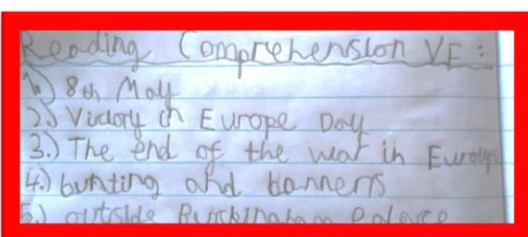 Reading Comprehension VE :
1.) 8th May
2.) Victory in Europe Day
3.) The end of the war in Europe
4.) bunting and banners
5.) outside Buckingham Palace